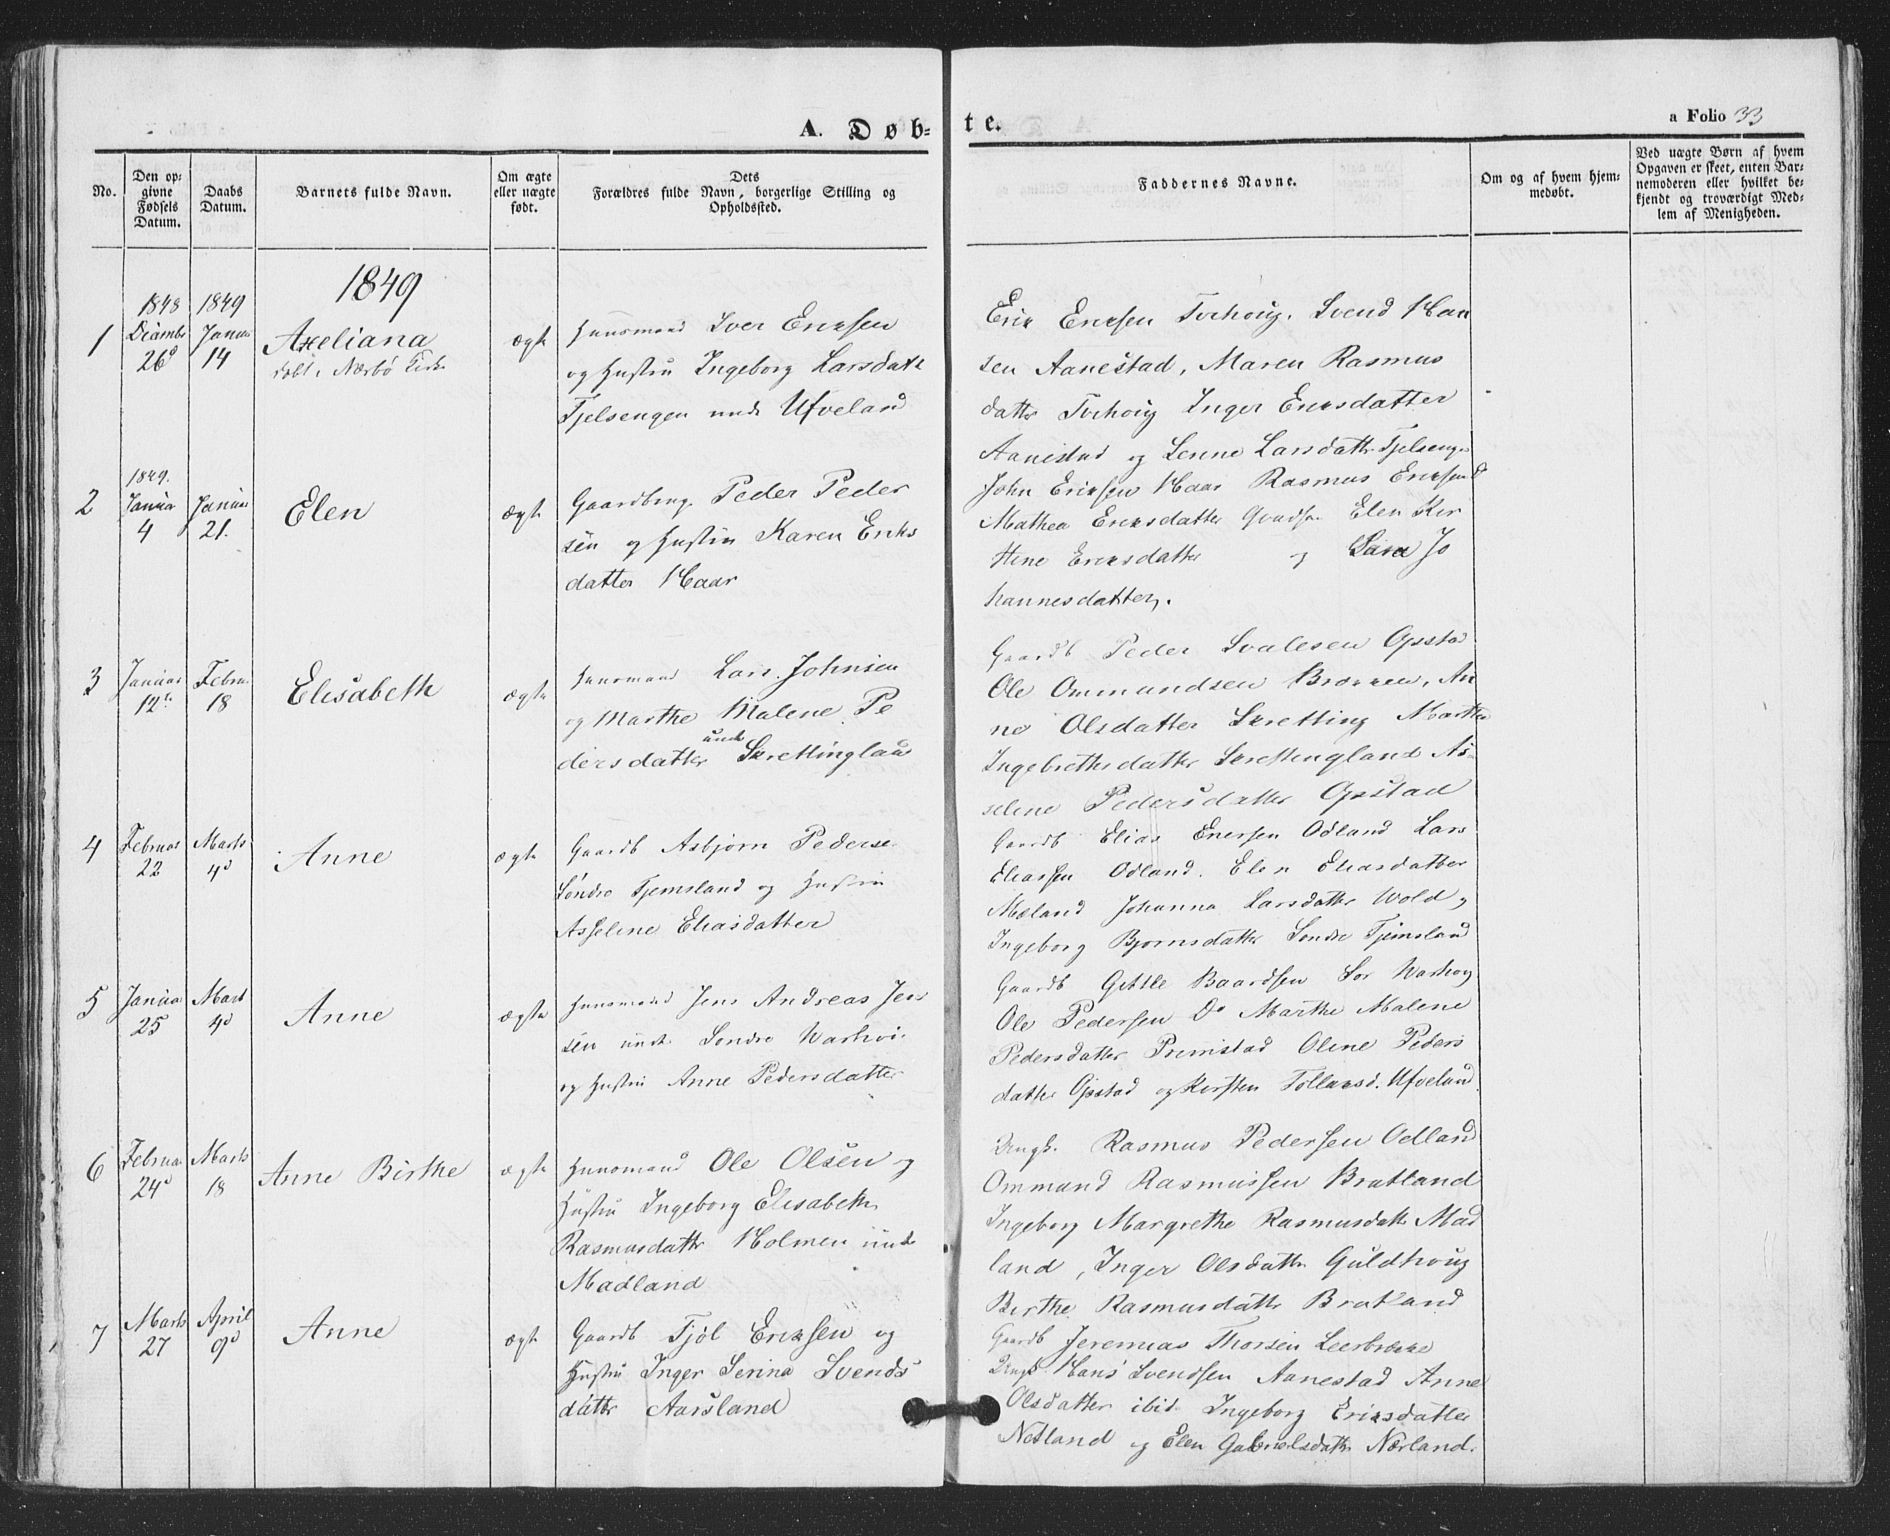 A. Døb-
te.
a Folio 33
No.
Den op-
givne
Fødsels
Datum.
Daabs
Datum.
Barnets fulde Navn.
Om ægte
eller uægte
født.
Dets
Forældres fulde Navn, borgerlige Stilling og
Opholdssted.
Faddernes Navne.
Om og af hvem hjem-
medøbt.
Ved uægte Børn af hvem
Opgaven er skeet, enten Bar-
nemoderen eller hvilket be-
kjendt og troværdigt Med-
lem af Menigheden.
1849
1
1848
26d
1849
Januar
14
Axeliana
døbt i Nærbø Kirke
ægte
Huusmand Iver Eriksen
og Hustru Ingeborg Larsdatt
Fjelsengen unde Ufveland
Erik Eriksen Tvihoug, Svend Han
sen Aanestad, Maren Rasmus
datte Tvihoug Inger Eriksdatter
Aanestad og Lenne Larsdatte Fjelsenge
2
1849.
Januar
4
Januar
21.
Elen
ægte
Gaardbrug. Peder Peder
sen og Hustru Karen Eriks
datter Haar
John Eriksen Haar Rasmus Eriksen
Mathea Eriksdatter Elen Kir
stine Eriksdatter og Sara Jo
hannesdatter.
3
Januar
12te
Febru
18
Elisabeth
ægte
Huusmand Lars Johnsen
og Marthe Malene Pe
dersdatter unde Skrettinglan
Gaardb Peder Svalesen Opsta
Ole Ommundsen Brækken, An
ne Olsdatter Skretting Marthe
Ingebrethsdatter Skrettingland As
seline Pedersdatter Opstad
4
Februar
22
Marts
4d
Anne
ægte
Gaardb Asbjørn Pederse
Søndre Tjemsland og Hustru
Asseline Eliasdatter
Gaardb Elias Enersen Odland Lars
Eliassen Odland. Elen Eliasdatter
Mæland Johanna Larsdatte Wold og
Ingeborg Bjornsdatte Søndre Tjemsland
5
Janua
25
Mart
4d
Anne
ægte
Huusmand Jens Andreas Jen
sen unde Søndre Warhoi
og Hustru Anne Pedersdatter
Gaardb Gittle Baardsen Sør Warhog
Ole Pedersen Do Marthe Malene
Pedersdatter Primstad Oline Peders
datte Opstad og Kirsten Tollaksd. Ufveland
6
Februa
24d
Marts
18
Anne Birthe
ægte
Huusmand Ole Olsen og
Hustru Ingeborg Elisabeth
Rasmusdatte Holmen unde
Madland
Ungk. Rasmus Pedersen Odland
Ommund Rasmussen Bratland
Ingeborg Margrethe Rasmusdatte Mad
land, Inger Olsdatte Guldhoug
Birthe Rasmusdatte Bratland
7
Marts
27
April
9d
Anne
ægte
Gaardb Tjøl Eriksen og
Hustru Inger Serina Svends
datter Aarsland
Gaardb Jeremias Thorsen Leerbrekke
Ungk Hans Svendsen Aanestad Anne
Olsdatter ibid. Ingeborg Eriksdatter
Netland og Elen Gabrielsdatte Nærland.